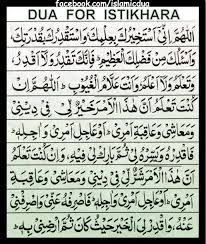 facebook.com/islamicdua
DUA FOR ISTIKHARA
اَللّٰهُمَّ اِنِّیْ اَسْتَخِیْرُكَ بِعِلْمِكَ وَاَسْتَقْدِرُكَ بِقُدْرَتِكَ
وَاَسْئَلُكَ مِنْ فَضْلِكَ الْعَظِیْمِ فَاِنَّكَ تَقْدِرُ وَلَا اَقْدِرُ
وَتَعْلَمُ وَلَا اَعْلَمُ وَاَنْتَ عَلَّامُ الْغُیُوْبِ اَللّٰهُمَّ اِنْ
كُنْتَ تَعْلَمُ اَنَّ هٰذَا الْاَمْرَ خَیْرٌ لِّیْ فِیْ دِیْنِیْ
وَمَعَاشِیْ وَعَاقِبَةِ اَمْرِیْ اَوْ عَاجِلِ اَمْرِیْ وَاٰجِلِهٖ
فَاقْدِرْهُ وَیَسِّرْهُ لِیْ ثُمَّ بَارِكْ لِیْ فِیْهِ وَاِنْ كُنْتَ تَعْلَمُ
اَنَّ هٰذَا الْاَمْرَ شَرٌّ لِّیْ فِیْ دِیْنِیْ وَمَعَاشِیْ وَعَاقِبَةِ
اَمْرِیْ اَوْ عَاجِلِ اَمْرِیْ وَاٰجِلِهٖ فَاصْرِفْهُ عَنِّیْ وَاصْرِفْنِیْ
عَنْهُ وَاقْدِرْ لِیَ الْخَیْرَ حَیْثُ كَانَ ثُمَّ اَرْضِنِیْ بِهٖ